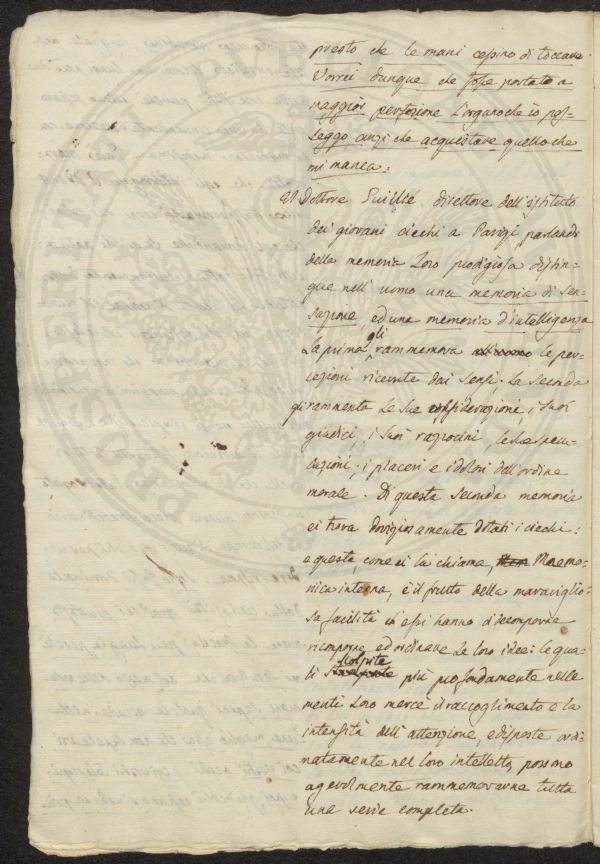 presto che le mani cessino di toccare.
Vorrei dunque che fosse portato a
maggior perfezione l'organo che io pos-
seggo, anzi che acquistare quello che
mi manca.
Il Dottore Guillié direttore dell'istituto
dei giovani ciechi a Parigi parlando
della memoria loro prodigiosa distin-
gue nell'uomo una memoria di sen-
sazione, ed una memoria d'intelligenza
La prima gli rammemora le per-
cezioni ricevute dai sensi; la seconda
gli rammenta le sue considerazioni, i suoi
giudici, i suoi raziocini, le sue specu-
lazioni, i piaceri e i dolori dell'ordine
morale. Di questa seconda memoria
ei trova doviziosamente dotati i ciechi:
e questa, come ei la chiama, Mnemo-
nica interna, è il frutto della maraviglio-
sa facilità ch'essi hanno di decomporre
ricomporre ed ordinare le loro idee: le qua-
li scolpite più profondamente nelle
menti loro mercè il raccoglimento e la
intensità dell'attenzione, e disposte ordi-
natamente nel loro intelletto, possono
agevolmente rammemorarne tutta
una serie completa.